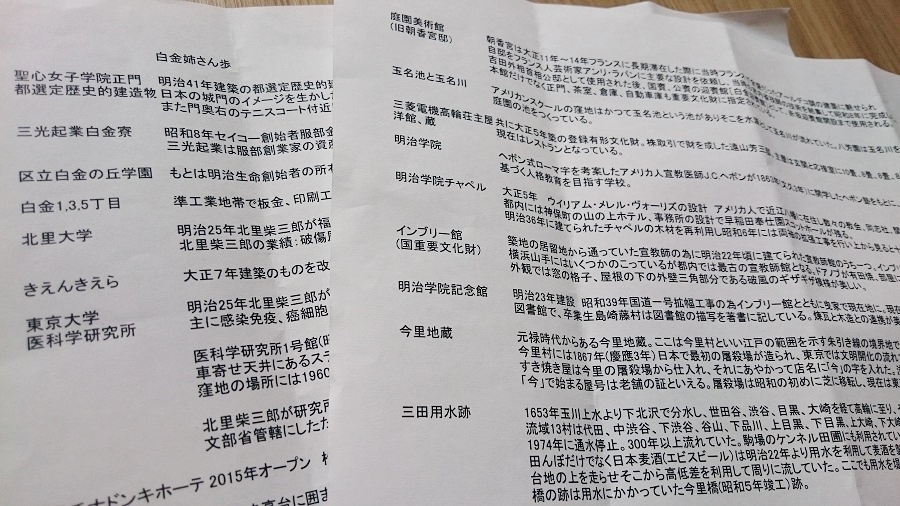 白金姉さん歩
聖心女子学院正門 明治41年建築の都選定歴史的建
都選定歴史的建造物 日本の城門のイメージを生かし
また門奥右のテニスコート付近
三光起業白金寮 昭和8年セイコー創始者服部金
三光起業は服部創業家の資産
区立白金の丘学園 もとは明治生命創始者の所
白金1,3,5丁目 準工業地帯で板金、印刷工
北里大学 明治25年北里柴三郎が福
北里柴三郎の業績:破傷
きえんきえら 大正7年建築のものを改
東京大学
医科学研究所
明治25年北里柴三郎が
主に感染免疫、癌細胞
医科学研究所1号館
車寄せ天井にあるステ
窪地の場所には1960
北里柴三郎が研究所
文部省管轄にした
ナドンキホーテ 2015年オープン
高台に囲ま
庭園美術館
(旧朝香宮邸)
朝香宮は大正11年~14年フランスに長期滞在した際に当時フランス
自邸をフランス人芸術家アンリ・ラパンに主要な設計を依頼し、
吉田外相首相公邸として使用された後、国賓、公賓の迎賓館
本館だけでなく正門、茶室、倉庫、自動車庫も重要文化財に指定
玉名池と玉名川 アメリカンスクールの窪地はかつて玉名池という池があり
庭園の池をつくっている。
三菱電機高輪荘主屋
洋館、蔵
共に大正5年築の登録有形文化財。株取引で財を成した遠山芳三
現在はレストランとなっている。
明治学院 ヘボン式ローマ字を考案したアメリカ人宣教医師J.C.ヘボンが1863
基づく人格教育を目指す学校。
明治学院チャペル 大正5年 ウイリアム・メレル・ヴォーリズの設計 アメリカ人で近江
都内には神保町の山の上ホテル、事務所の設計で早稲田奉仕園スコットホールが残る。
明治36年に建てられたチャペルの木材を再利用し昭和6年には両袖の拡張工事を行い上から見ると
インブリー館
(国重要文化財)
築地の居留地から通っていた宣教師の為に明治22年頃に建てられた宣教師館のうち一つ、インブリ
横浜山手にはいくつかのこっているが都内では最古の宣教師館となる。ドアノブが有田焼、
外観では窓の格子、屋根の下の外壁三角部分である破風のギザギザ模様が美しい。
明治学院記念館 明治23年建設 昭和39年国道一号拡幅工事の為インブリー館とともに曳家で現在地に。現在
図書館で、卒業生島崎藤村は図書館の描写を著書に記している。煉瓦と木造との連携が美
今里地蔵 元禄時代からある今里地蔵。ここは今里村といい江戸の範囲を示す朱引き線の境界地で
今里村には1867年(慶應3年)日本で最初の屠殺場が造られ、東京では文明開化の流れ
すき焼き屋は今里の屠殺場から仕入れ、それにあやかって店名に「今」の字を入れた。
「今」で始まる屋号は老舗の証といえる。屠殺場は昭和の初めに芝に移転し、現在は東
三田用水跡 1653年玉川上水より下北沢で分水し、世田谷、渋谷、目黒、大崎を経て高輪に至り、
流域13村は代田、中渋谷、下渋谷、谷山、下品川、上目黒、下目黒、上大崎、下大崎
1974年に通水停止。300年以上流れていた。駒場のケンネル田圃にも利用されてい
田んぼだけでなく日本麦酒(エビスビール)は明治22年より用水を利用して麦酒を製
台地の上を走らせそこから高低差を利用して周りに流している。ここでも用水を堤
橋の跡は用水にかかっていた今里橋(昭和5年竣工)跡。